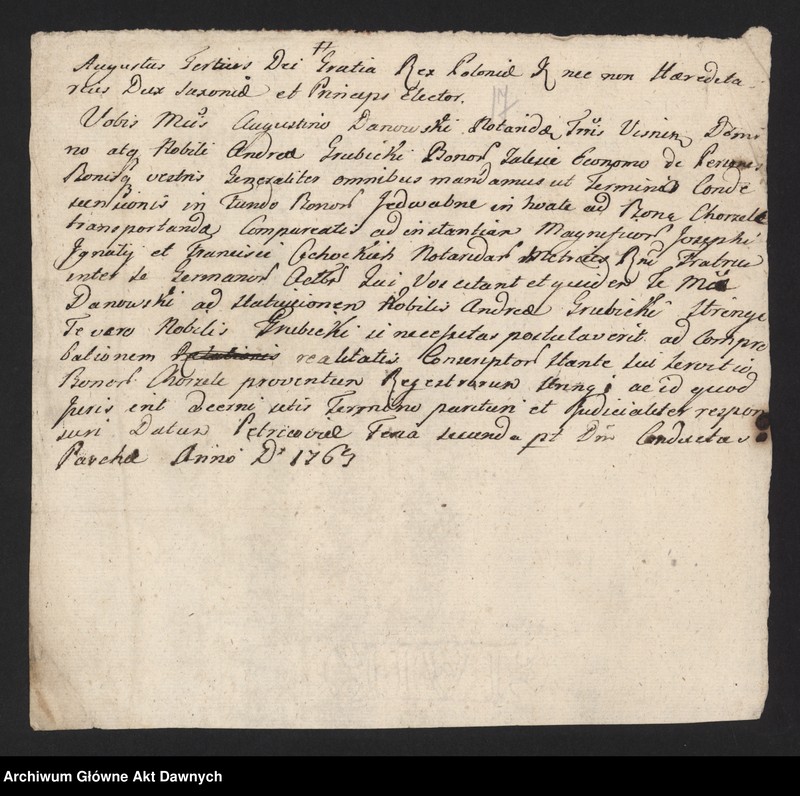 Augustus Tertius Dei Gratia Rex Poloniæ & nec non Hæredita
rius Dux Saxoniæ et Princeps Elector.
17
Vobis Mcis Augustino Danowski Notandæ Trris Visnen Domi
no atq Nobili Andreæ Grubicki Bonor Economo de Personis
Bonisq vestris Generaliter omnibus mandamus ut Termino Conde
scensionis in Fundo Bonor Jedwabne in hoate ad Bona Chorzele
transportandæ Compareatis ad instantiam Magnificor Josephi
Ignatij et Francisci Cichockich Notandar Rni Fratrum
inter se Germanor Actor Sui Vos citant et quidem Te Mce
Danowski ad statuitionem Nobilis Andreæ Grubicki Stringi
Te vero Nobilis Grubicki si necessitas postulaverit ad Compro
bationem realitatis Conscriptor stante sui servitio
Bonor Chorzele proventuum Regestrorum stringi ac id quod
Juris erit decerni istis Termino parituri et Judicialiter respon
suri Datum Petricoviæ Feria secunda pt Dnm Conductus
Paschæ Anno D 1763
Archiwum Główne Akt Dawnych